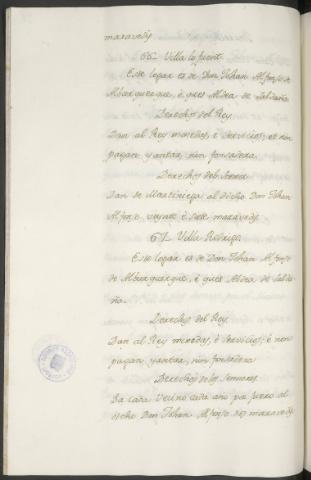 maravedis.
66. Villa la fuent.
Este logar es de Don Johan Alfonso de
Alburquerque, é que es Aldea de Saldaña.
Derechos del Rey.
Dan al Rey moneda, é servicios; et non
pagan yantar, nin fonsadera.
Derechos del Sennor.
Dan de Martiniega al dicho Don Johan
Alfonso é siete maravedis.
67. Villa Rodrigo.
Este logar es de Don Johan Alfonso
de Alburquerque, é que es Aldea de Salda-
ña.
Derechos del Rey.
Dan al Rey monedas, é servicios; é non
pagan yantar, nin fonsadera.
Derechos de los Sennores.
Da cada Vecino cada año por fuero al
dicho Don Johan Alfonso maravedis